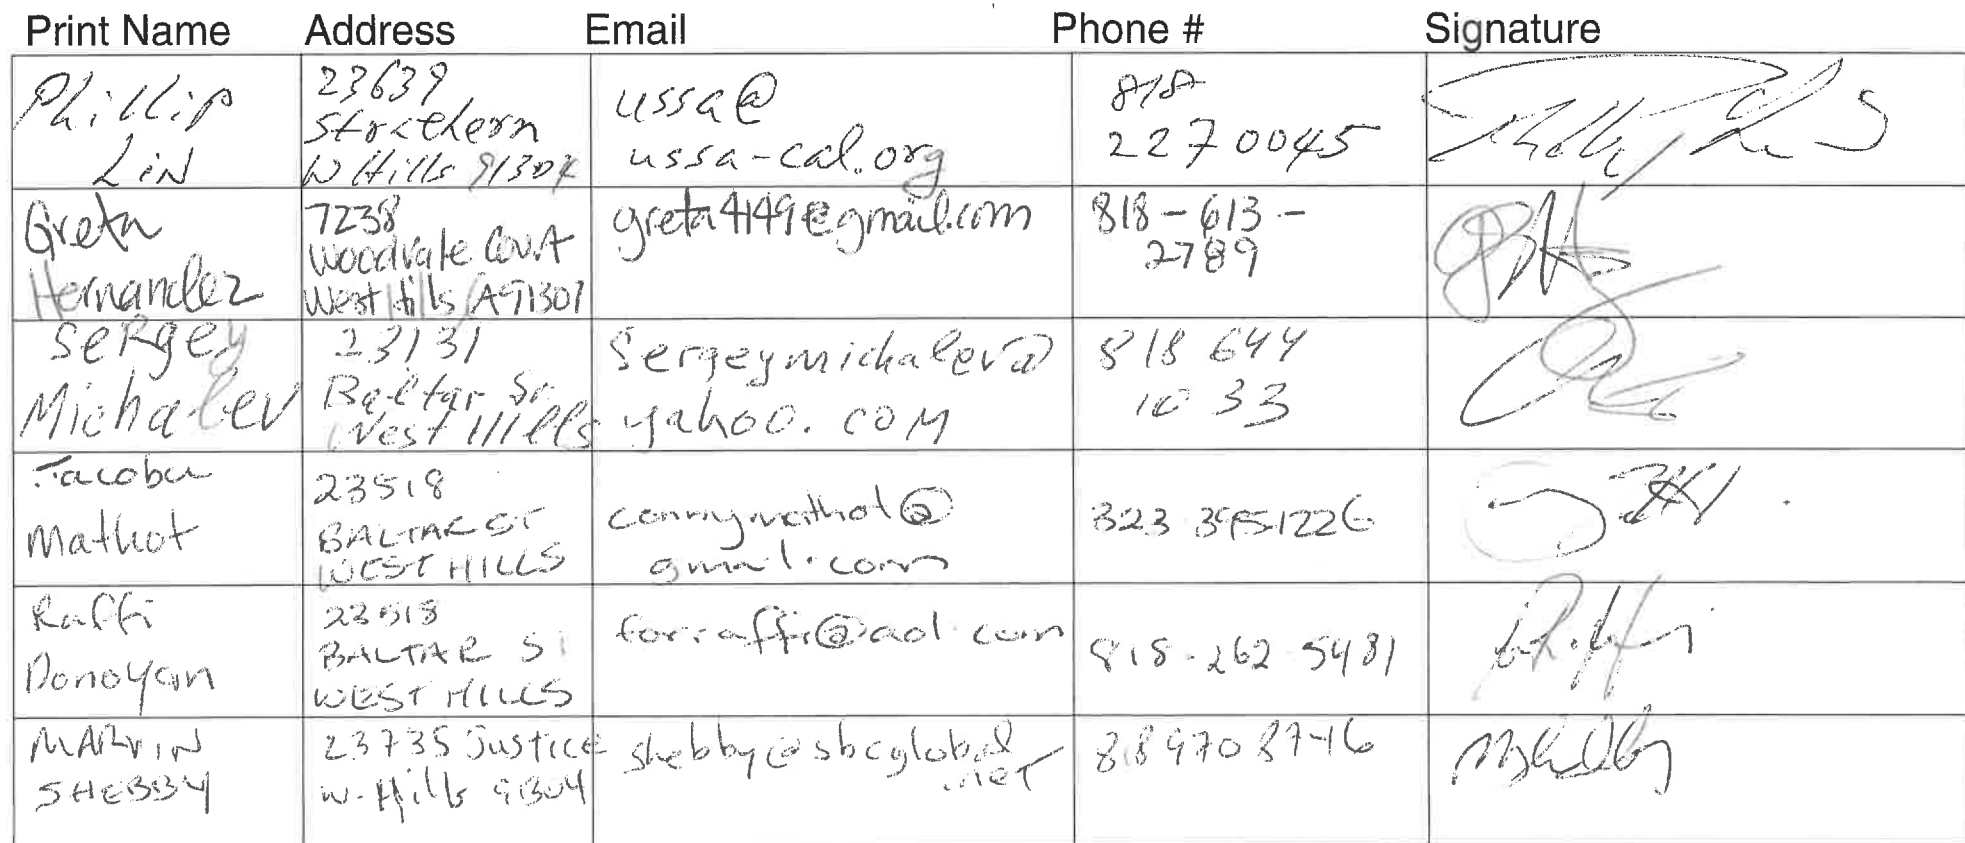 Print Name Address Email Phone # Signature
Phillip
Lin
23639
Strathern
W Hills 91304
ussa@
ussa-cal.org
818
227 0045
Greta
Hernandez
7238
Woodvale Court
West Hills CA 91307
greta4149@gmail.com
818-613-
2789
Sergey
Michalev
23131
Baltar St
West Hills
sergeymichalev@
yahoo.com
818 644
10 33
Mathot
23518
BALTAR ST
WEST HILLS
gmail.com
323 3951226
Raffi
Donoyan
23518
BALTAR ST
WEST HILLS
forraffi@aol.com
818-262 5481
MARVIN
SHEBBY
23735 Justice
W. Hills 91304
shebby@sbcglobal
.net